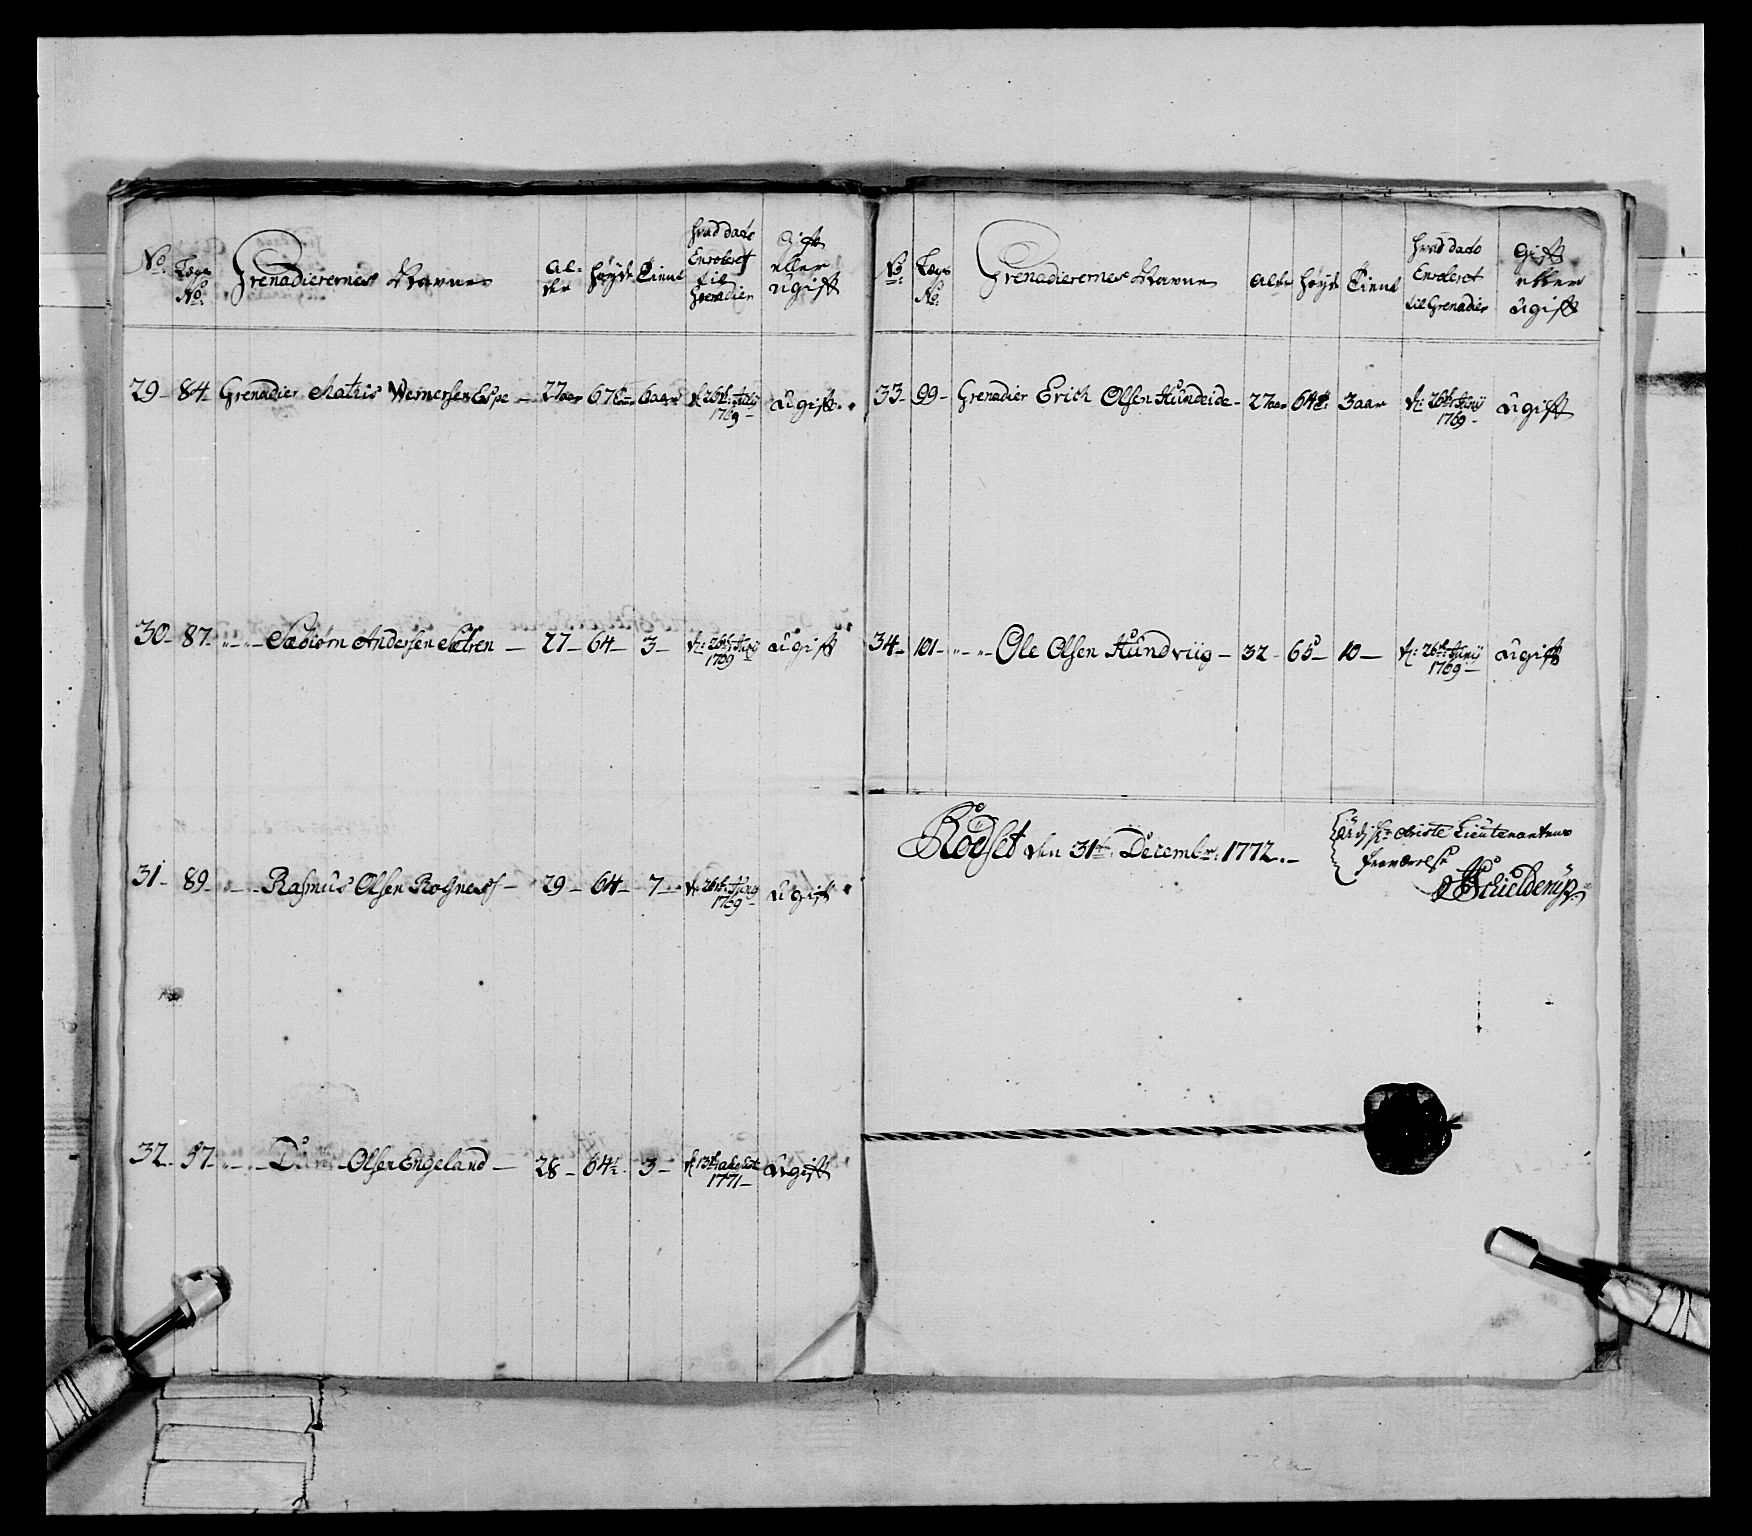 No. Lægs No. Grenadierernes Navne Alder Høyde Tient Hvad dato Enroleret til Grenadier Gift eller Ugift
29 - 84 Grenadier Mathis Wernersen Espe - 27 aar 67 6 aar d. 26de Junij 1769 - Ugift
30 - 87 - " - " - Sædiørn Andersen Sætren - 27 - 64 - 3 - d: 26de Junij 1769 Ugift
31 - 89 - " - " - Rasmus Olsen Rognes - 29 - 64 - 7 - d: 26de Junij 1769 - Ugift
32 - 57 - " - " - Olsen Engeland - 28 - 64½ - 3 - d 13de 1771 - Ugift
No: Lægs No. Grenadierernes Navne Alder Høyde Tient Hvad dato Enroleret til Grenadier Gift eller Ugift
33 - 99 - Grenadier Erich Olsen Hundeide - 27 aar 64 3 aar d: 26de Junij 1769 - Ugift
34 - 101 - " - " - Ole Olsen Hundviig - 32 - 65 - 10 - d: 26de Junij 1769 - Ugift
Rödset den 31te Decembr: 1772. -
Lieutenantens
fraværelse
Schielderup